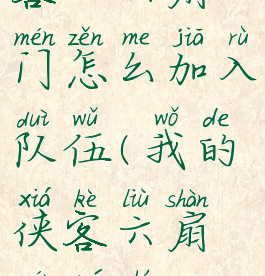 mén zěn me jiā rù
门怎么加入
duì wǔ wǒ de
队伍(我的
xiá kè liù shàn
侠客六扇